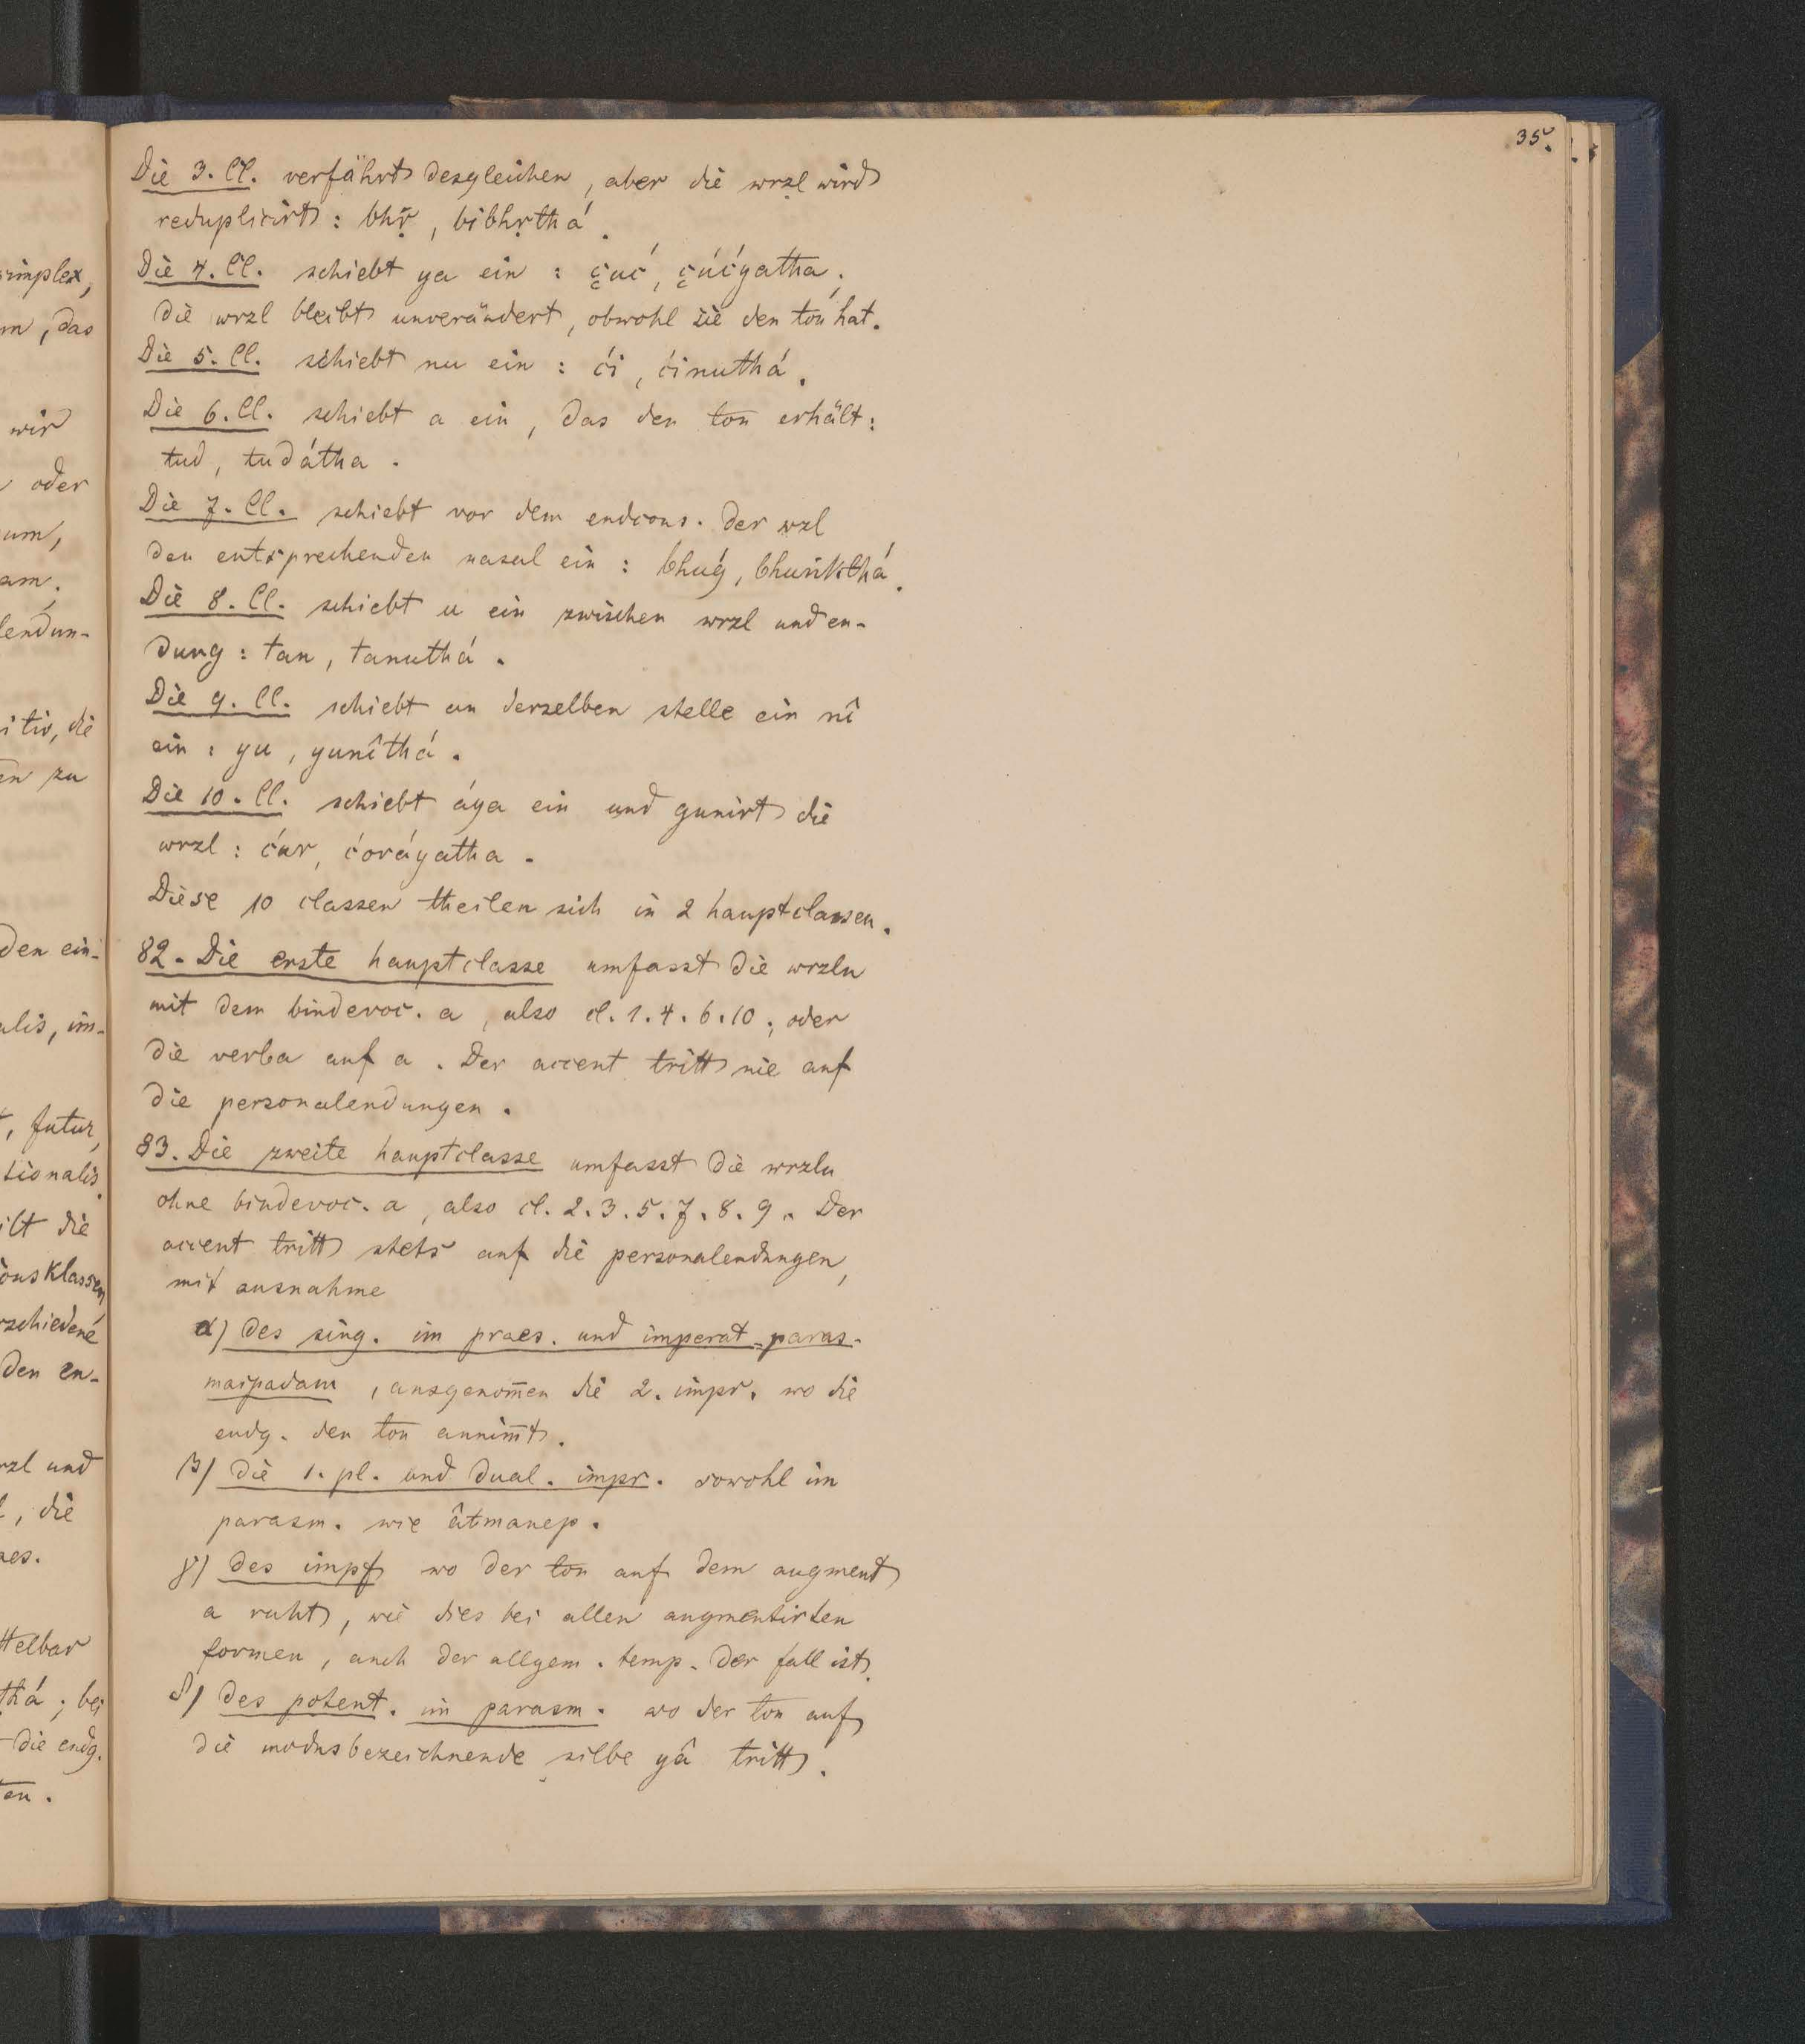 35.
simplex,
m, das
wir
oder
um,
am;
lendun-
itiv, die
en zu
den ein-
alis, im-
t, futur,
tionalis.
ilt die
ionsklassen,
rschiedene
den en-
rzl und
l, die
aes.
ttelbar
thá; bei
die endg.
ten.
Die 3. Cl. verfährt desgleichen, aber die wrzl wird
reduplicirt: bhr̥, bibhr̥thá.
Die 4. Cl. schiebt ya ein: çuć, çúćyatha;
die wrzl bleibt unverändert, obwohl sie den ton hat.
Die 5. Cl. schiebt nu ein: ći, ćinuthá.
Die 6. Cl. schiebt a ein, das den ton erhält:
tud, tudátha.
Die 7. Cl. schiebt vor dem endcons. der wzl
den entsprechenden nasal ein: bhuǵ, bhuṅkthá.
Die 8. Cl. schiebt u ein zwischen wrzl und en-
dung: tan, tanuthá.
Die 9. Cl. schiebt an derselben stelle ein nî
ein: yu, yunîthá.
Die 10. Cl. schiebt áya ein und gunirt die
wrzl: ćur, ćoráyatha.
Diese 10 classen theilen sich in 2 hauptclassen.
82. Die erste hauptclasse umfasst die wrzln
mit dem bindevoc. a, also cl. 1. 4. 6. 10; oder
die verba auf a. Der accent tritt nie auf
die personalendungen.
83. Die zweite hauptclasse umfasst die wrzln
ohne bindevoc. a, also cl. 2. 3. 5. 7. 8. 9. Der
accent tritt stets auf die personalendungen,
mit ausnahme
α) des sing. im praes. und imperat. paras-
maipadam, ausgenom̅en die 2. impr. wo die
endg. den ton annim̅t.
β) die 1. pl. und dual. impr. sowohl im
parasm. wie âtmanep.
γ) des impf wo der ton auf dem augment
a ruht, wie dies bei allen augmentirten
formen, auch der allgem. temp. der fall ist.
δ) des potent. im parasm. wo der ton auf
die modusbezeichnende silbe yâ tritt.